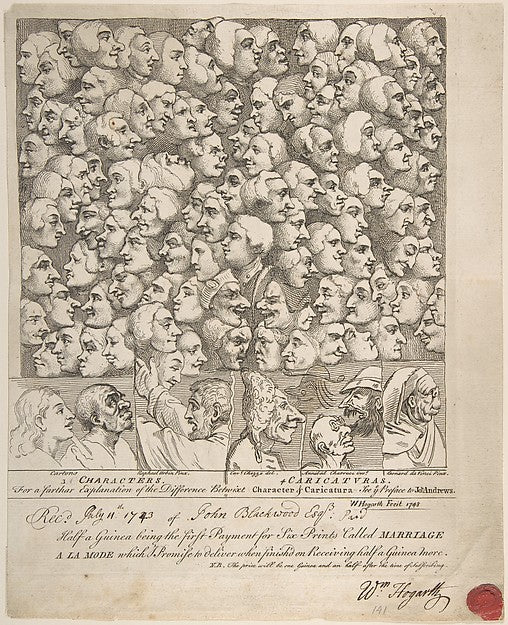 Cartons
Raphael Urbin Pinx.
Cav.r Ghezze del.
Annibal Charracc
Leonard da Vinci Pinx.
3 CHARACTERS.
4 CARICATURAS.
For a farthar Explanation of the Difference Betwixt Character & Caricatura See ye Preface to Jo.h Andrews.
W. Hogarth Fecit 1743
Rec.d July 11th 1743 of John Blackwood Esq.r Paid
Half a Guinea being the first Payment for Six Prints Called MARRIAGE
A LA MODE which I Promise to deliver when finish'd on Receiving half a Guinea more.
N.B. The price will be one Guinea and an half after the time of Subscribing.
Wm Hogarth
191